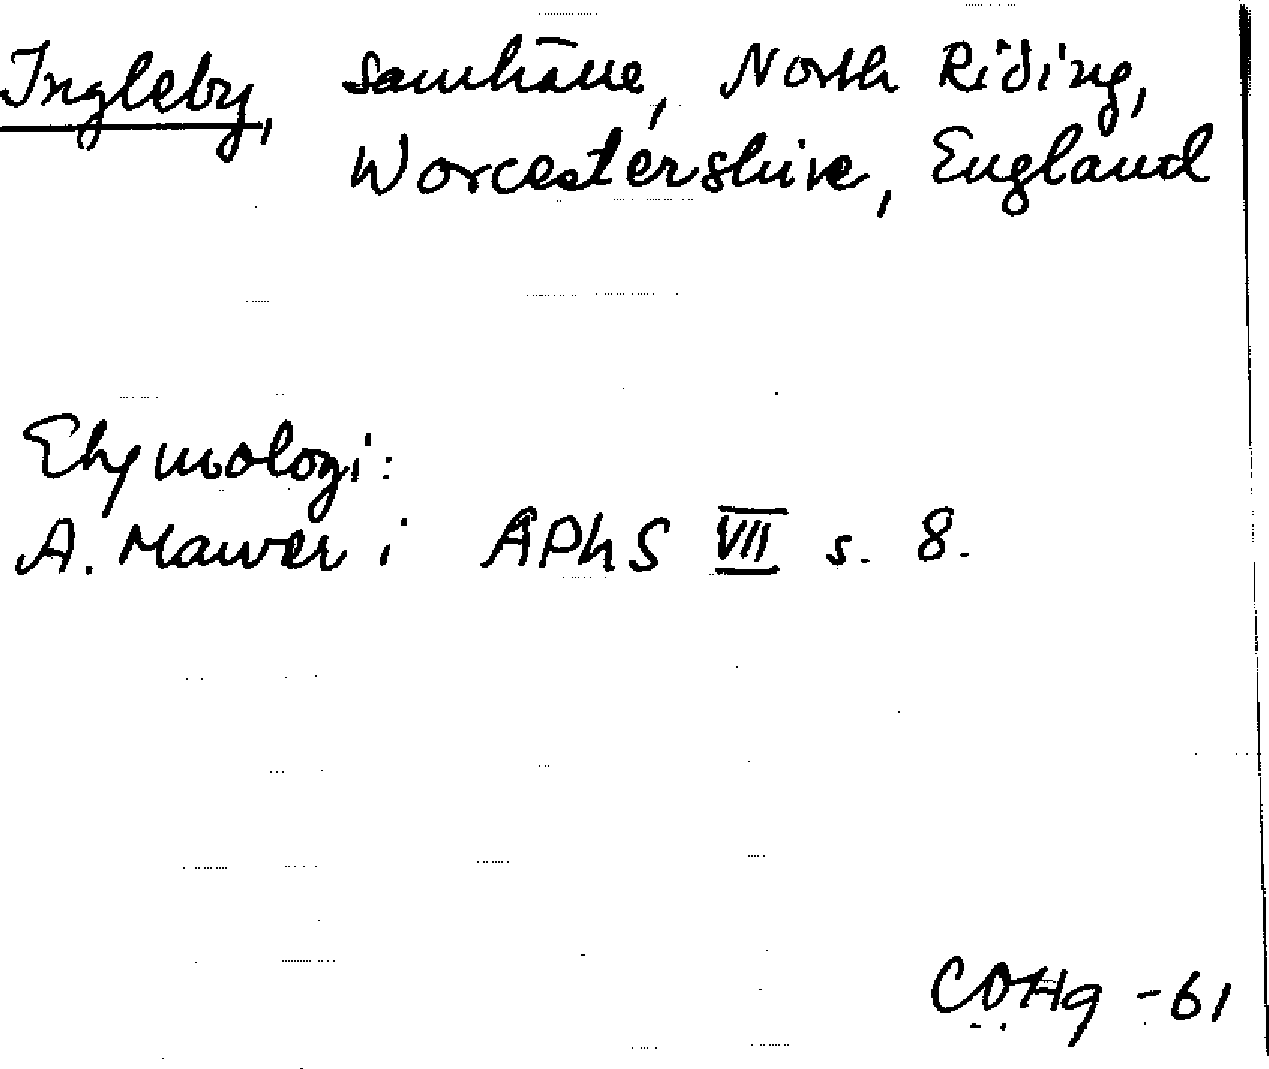 Ingleby, samhäue, North Riding,
Worcestershire, England
Etymologi:
A. Mawer i APhS VII s. 8.
COHg -61